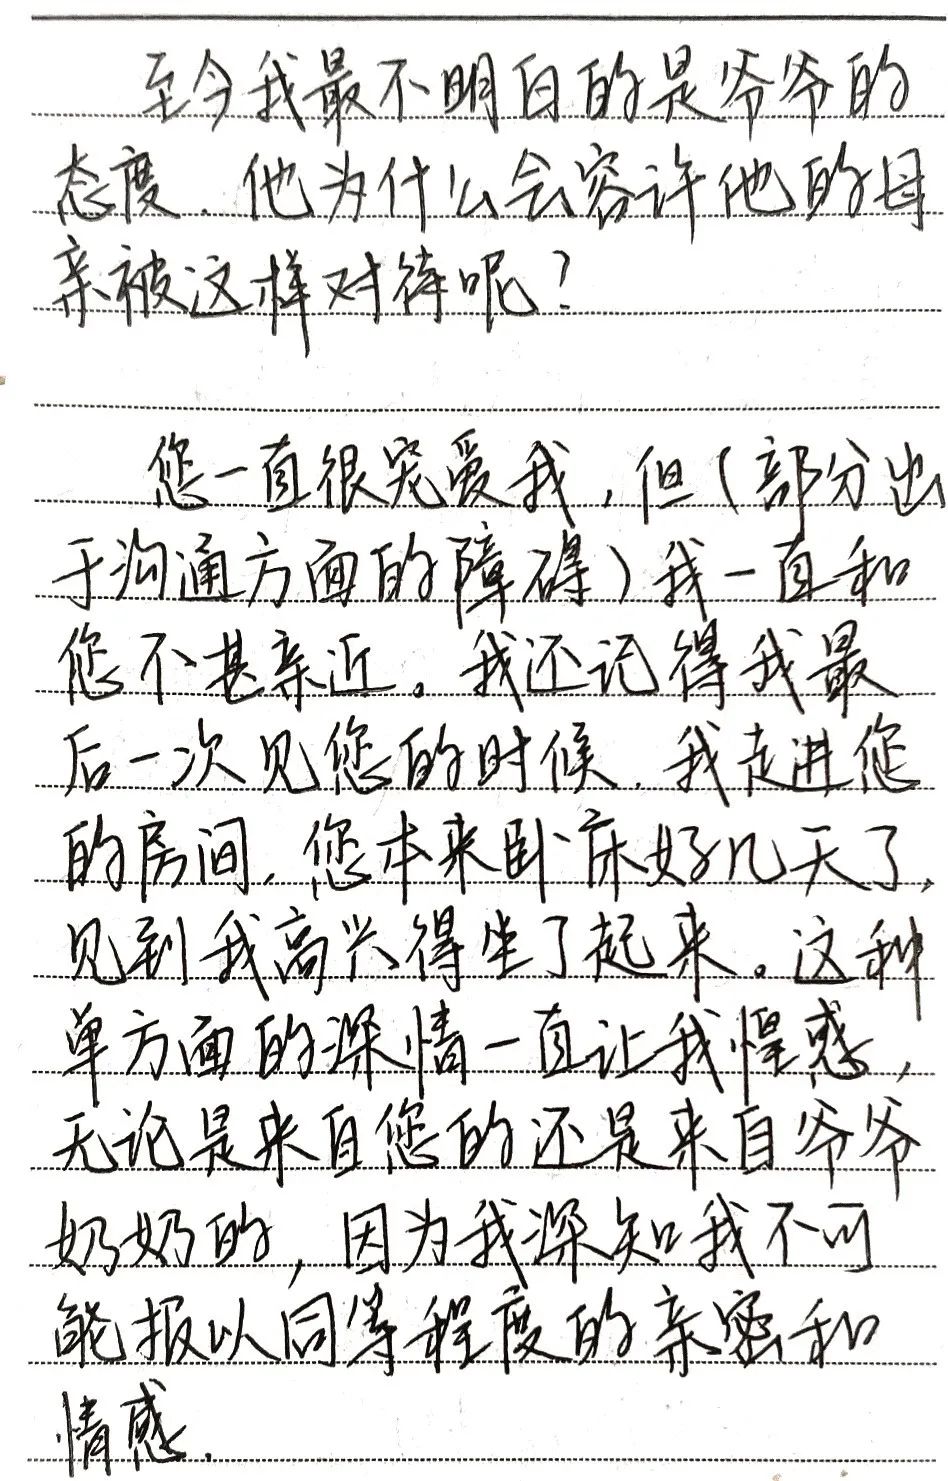 至今我最不明白的是爷爷的
态度.他为什么会容许他的母
亲被这样对待呢?
您一直很宠爱我,但(部分出
于沟通方面的障碍)我一直和
您不甚亲近。我还记得我最
后一次见您的时候.我走进您
的房间.您本来卧床好几天了,
见到我高兴得坐了起来。这种
单方面的深情一直让我惶惑,
无论是来自您的还是来自爷爷
奶奶的,因为我深知我不可
能报以同等程度的亲密和
情感.